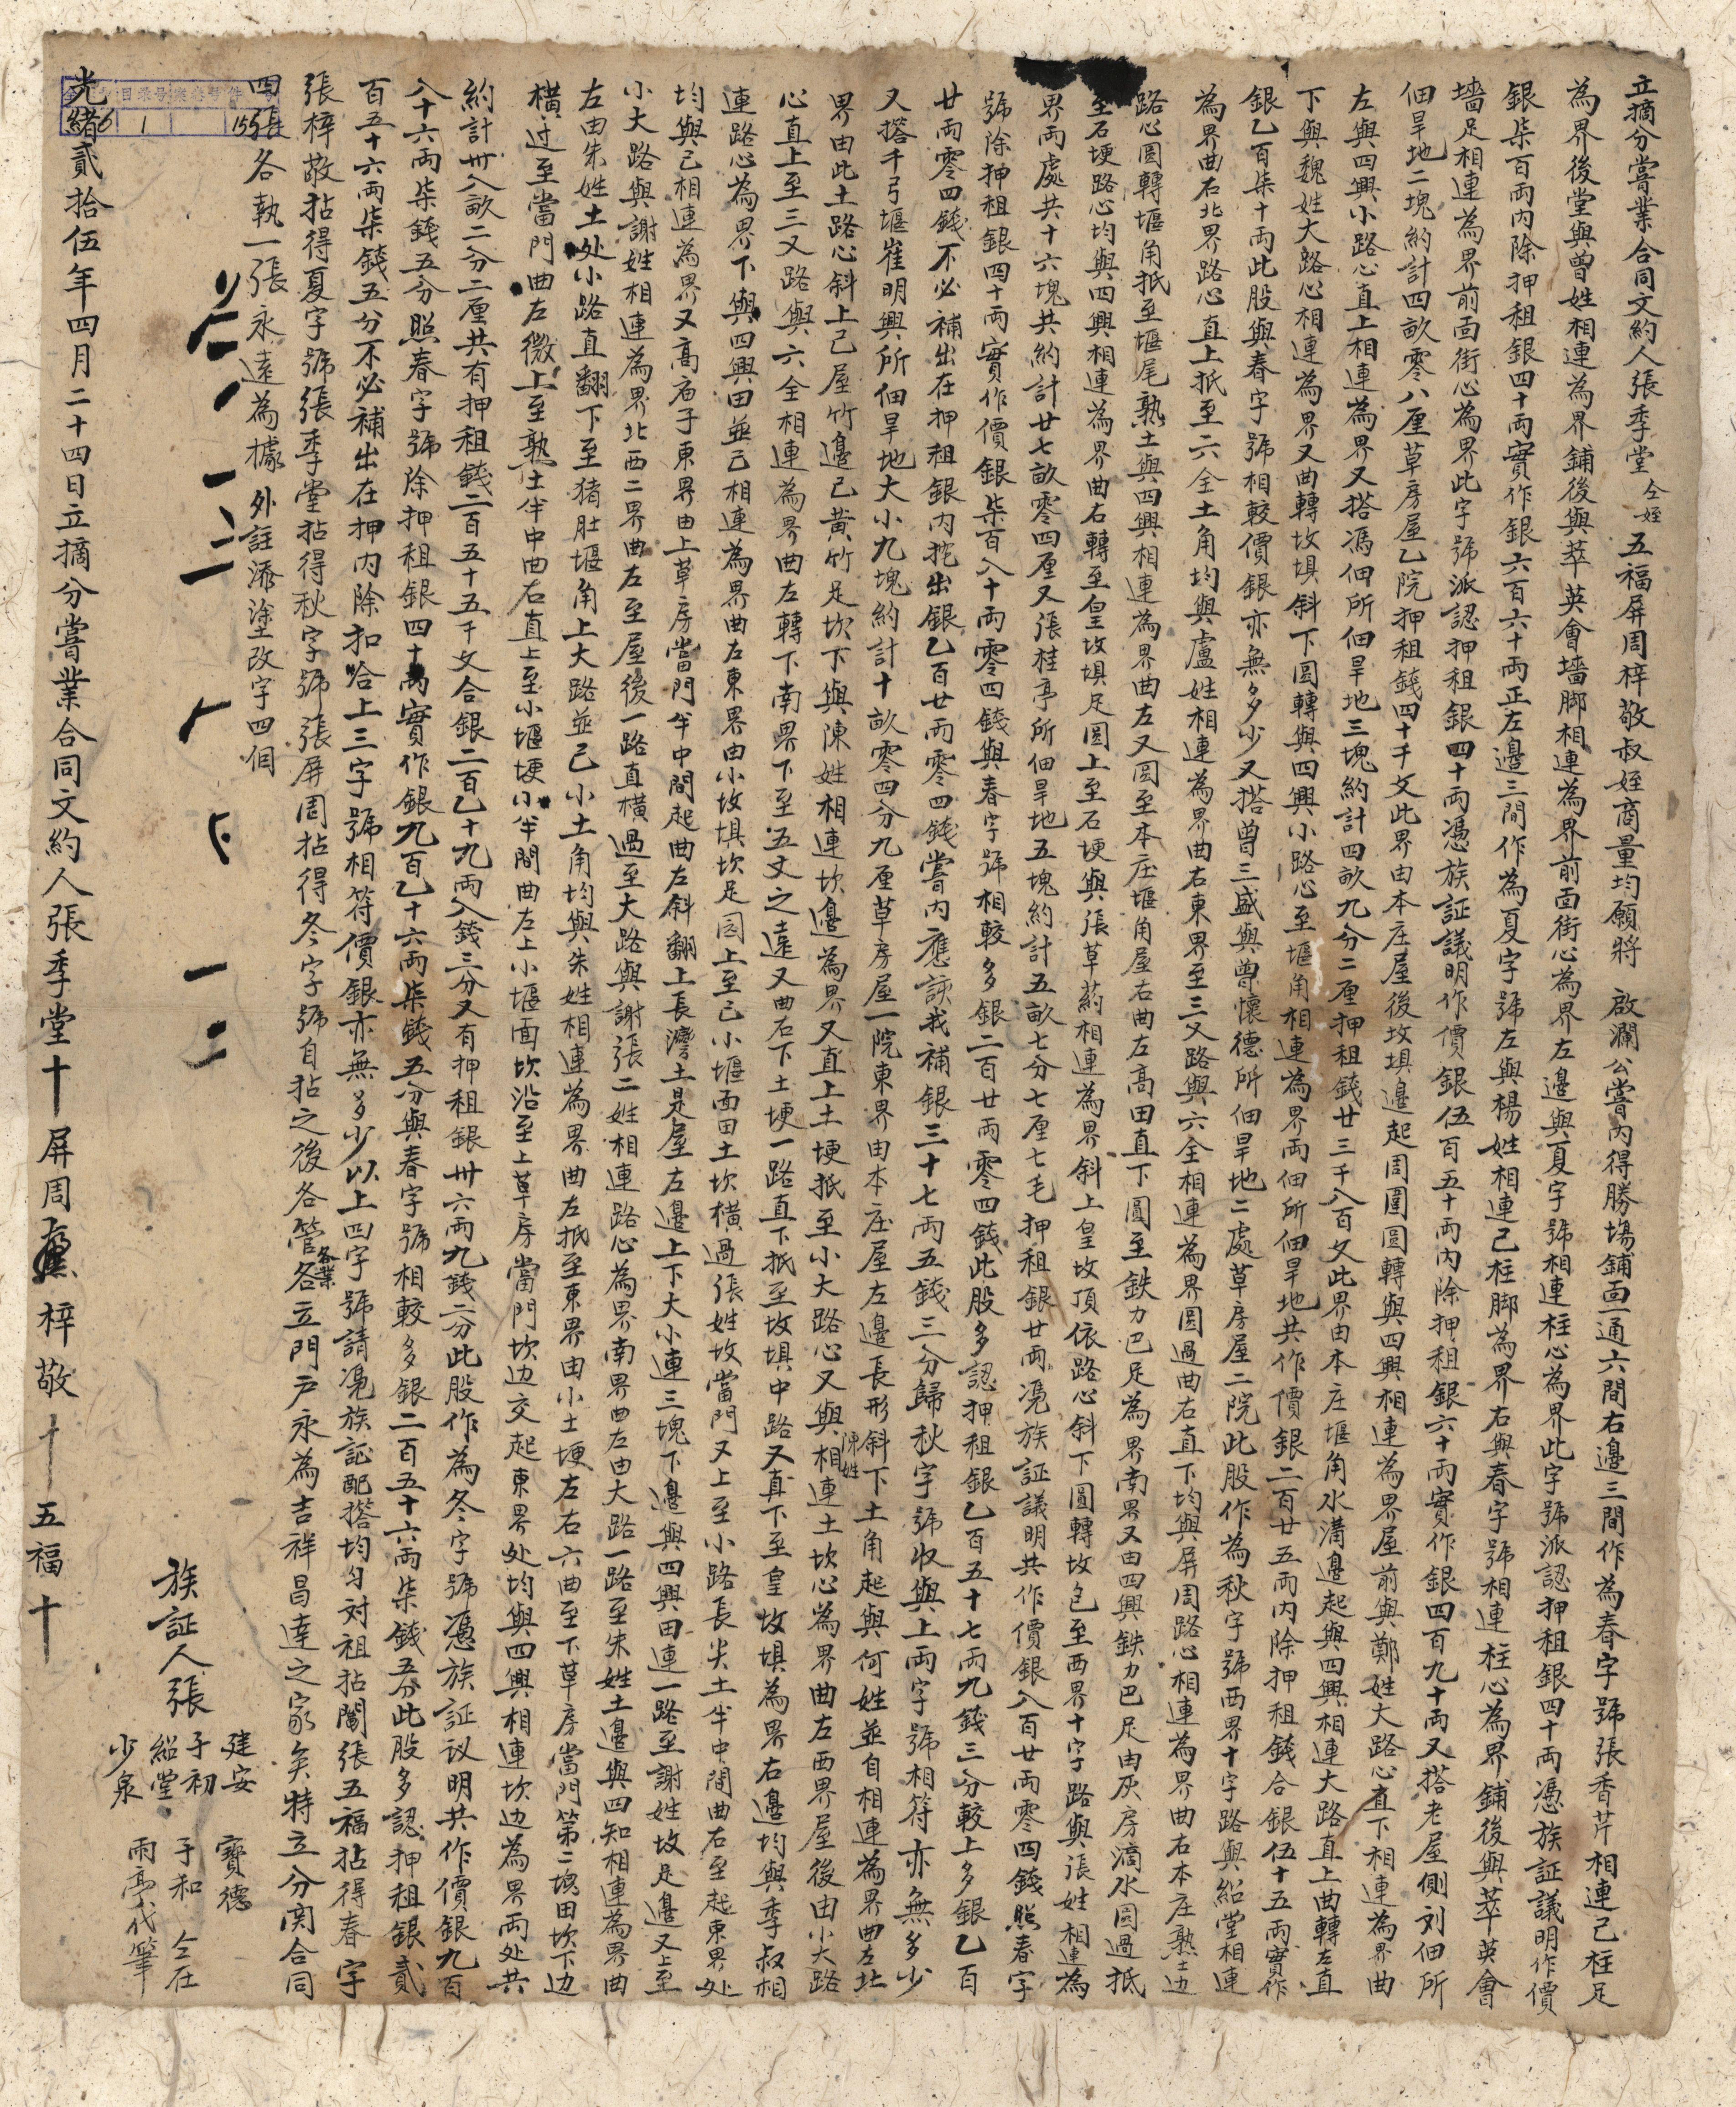 立摘分嘗業合同文約人張季堂仝姪五福屏周梓敬叔姪商量均願將 啟瀾公嘗內得勝塲鋪面一通六間右邊三間作為春字號張香芹相連己柱足
為界後堂與曾姓相連為界鋪後與萃英會墻脚相連為界前面街心為界左邊與夏字號相連柱心為界此字號派認押租銀四十両憑族証議明作價
銀柒百両內除押租銀四十両實作銀六百六十両正左邊三間作為夏字號左與楊姓相連己柱脚為界右與春字號相連柱心為界鋪後與萃英會
墻足相連為界前面街心為界此字號派認押租銀四十両憑族証議明作價銀伍百五十両內除押租銀六十両實作銀四百九十両又搭老屋側刘佃所
佃旱地二塊約計四畝零八厘草房屋乙院押租錢四十千文此界由本庄屋後坟埧邉起周圍圓轉與四興相連為界屋前與鄭姓大路心直下相連為界曲
左與四興小路心直上相連為界又搭馮佃所佃旱地三塊約計四畝九分二厘押租錢廿三千八百文此界由本庄堰角水溝邉起與四興相連大路直上曲轉左直
下與魏姓大路心相連為界又曲轉坟埧斜下圓轉與四興小路心至堰角相連為界両佃所佃旱地共作價銀二百廿五両內除押租錢合銀伍十五両實作
銀乙百柒十両此股與春字號相較價銀亦無多少又搭曾三盛與曾懷德所佃旱地二處草房屋二院此股作為秋字號西界十字路與紹堂相連
為界曲右北界路心直上抵至六仝土角均與盧姓相連為界曲右東界至三叉路與六仝相連為界圓過曲右直下均與屏周路心相連為界曲右本庄熟土边
路心圓轉堰角抵至堰尾熟土與四興相連為界曲左又圓至本庄堰角屋右曲左高田直下圓至鉄力巴足為界南界又由四興鉄力巴足由灰房滴水圓過抵
至石埂路心均與四興相連為界曲右轉至皇坟埧足圓上至石埂與張草葯相連為界斜上皇坟頂依路心斜下圓轉坟包至西界十字路與張姓相連為
界両處共十六塊共約計廿七畝零四厘又張桂亭所佃旱地五塊約計五畝七分七厘七毛押租銀廿両憑族証議明共作價銀八百廿両零四錢照春字
號除押租銀四十両實作價銀柒百八十両零四錢與春字號相較多銀二百廿両零四錢此股多認押租銀乙百五十七両九錢三分較上多銀乙百
廿両零四錢不必補出在押租銀內挖出銀乙百廿両零四錢嘗內應該我補銀三十七両五錢三分歸秋字號收與上両字號相符亦無多少
又搭千弓堰崔明興所佃旱地大小九塊約計十畝零四分九厘草房屋一院東界由本庄屋左邉長形斜下土角起與何姓並自相連為界曲左北
界由此土路心斜上己屋竹邉己黄竹足坎下與陳姓相連坎邉為界又直上土埂抵至小大路心又與陳姓相連土坎心為界曲左西界屋後由小大路
心直上至三叉路與六仝相連為界曲左轉下南界下至五丈之遠又曲右下土埂一路直下抵至坟埧中路又直下至皇坟埧為界右邉均與季叔相
連路心為界下與四興田並己相連為界曲左東界由小坟埧坎足囘上至己小堰面田土坎橫過張姓坟當門又上至小路長尖土半中間曲右至起東界处
均與己相連為界又高庙子東界由上草房當門半中間起曲左斜翻上長灣土是屋左邉上下大小連三塊下邉與四興田連一路至謝姓坟足邉又上至
小大路與謝姓相連為界北西二界曲左至屋後一路直橫過至大路與謝張二姓相連路心為界南界曲左由大路一路至朱姓土邉與四知相連為界曲
左由朱姓土处小路直翻下至猪肚堰角上大路並己小土角均與朱姓相連為界曲左抵至東界由小土埂左右六曲至下草房當門第二塊田坎下边
橫过至當門曲左微上至熟土半中曲右直上至小堰埂小半間曲左上小堰面坎沿至上草房當門坎边交起東界处均與四興相連坎边為界両处共
約計卅八畝二分二厘共有押租錢二百五十五千文合銀二百乙十九両八錢三分又有押租銀卅六両九錢二分此股作為冬字號憑族証议明共作價銀九百
八十六両柒錢五分照春字號除押租銀四十両實作銀九百乙十六両柒錢五分與春字號相較多銀二百五十六両柒錢五分此股多認押租銀貳
百五十六両柒錢五分不必補出在押內除扣哈上三字號相符價銀亦無多少以上四字號請憑族証配搭均勻対祖拈鬮張五福拈得春字
張梓敬拈得夏字號張季堂拈得秋字號張屏周拈得冬字號自拈之後各管各業各立門戶永為吉祥昌達之家矣特立分関合同
四張各執一張永遠為據 外註添塗改字四個
族証人張 建安 子初 紹堂 少泉 寶德 子和 仝在 雨亭代筆
光緒貳拾伍年四月二十四日立摘分嘗業合同文約人張季堂十 屏周 梓敬十 五福十
目录号 案卷号 件号
6 1 155